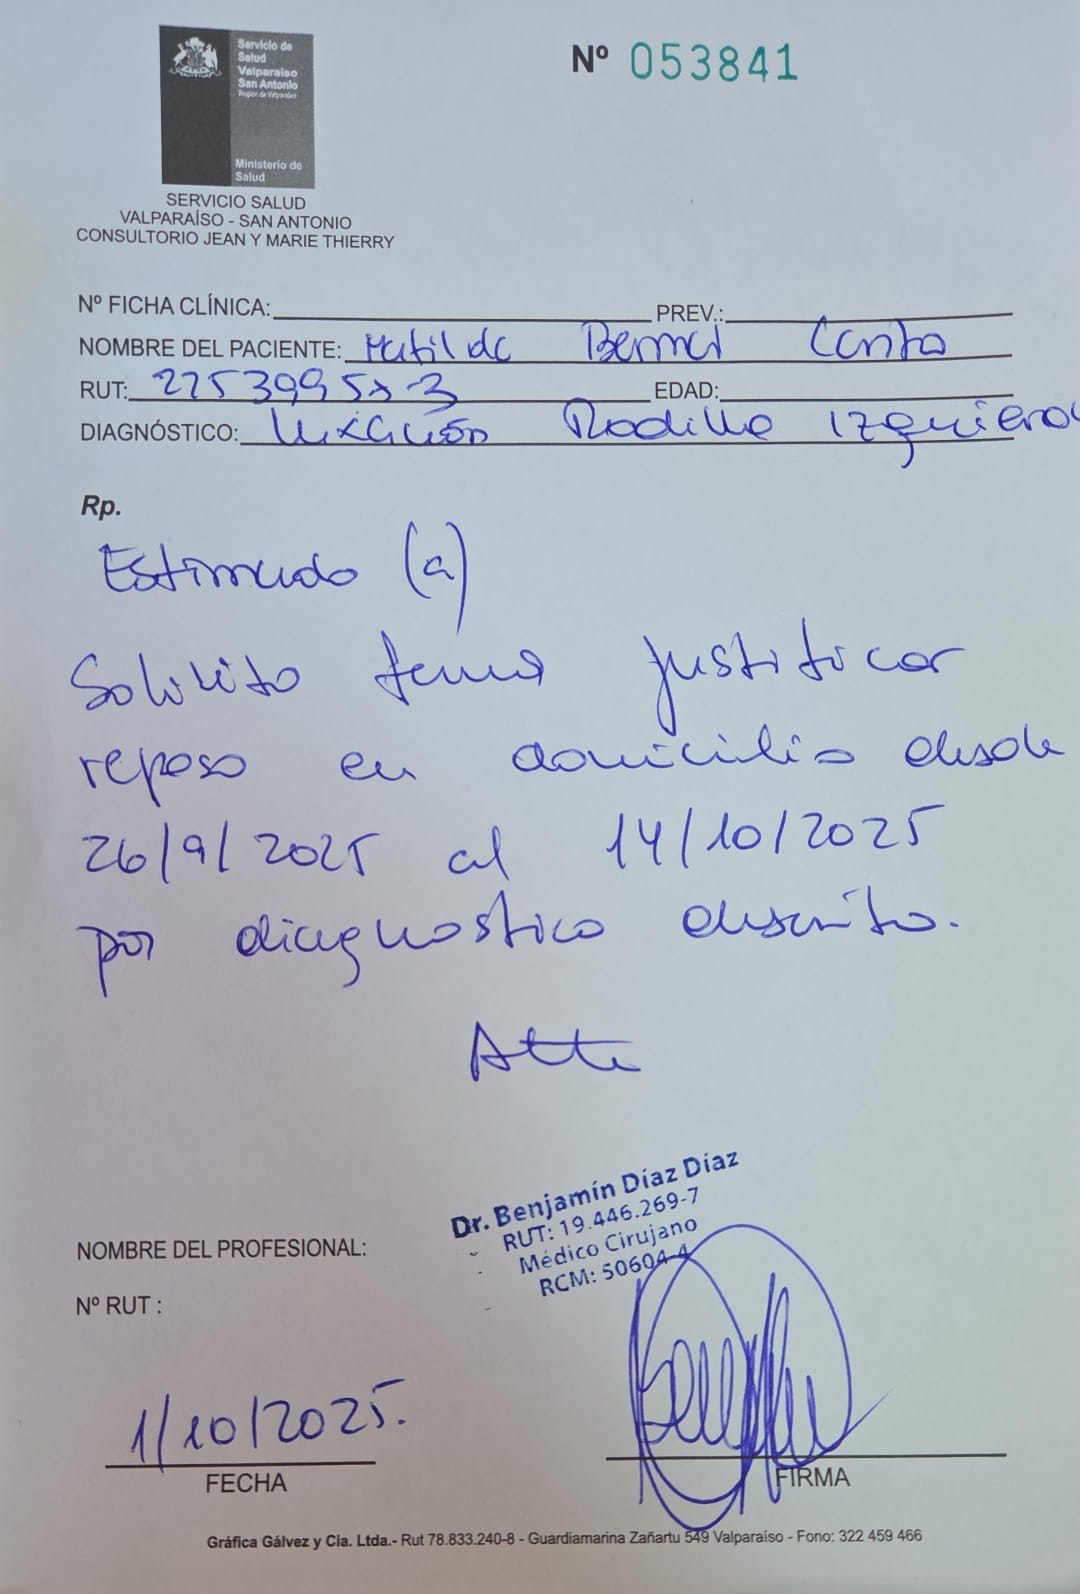 Servicio de
Salud
Valparaíso
San Antonio
Región de Valparaíso
Ministerio de
Salud
Nº 053841
SERVICIO SALUD
VALPARAÍSO - SAN ANTONIO
CONSULTORIO JEAN Y MARIE THIERRY
Nº FICHA CLÍNICA: PREV.:
NOMBRE DEL PACIENTE: Matilda Bernal
RUT: EDAD:
DIAGNÓSTICO: Luxación Rodilla Izquierda
Rp.
Estimado (a)
Solicito justificar
reposo en domicilio desde
26/9/2025 al 14/10/2025
por diagnostico descrito.
Atte
Dr. Benjamín Díaz Díaz
RUT: 19.446.269-7
Médico Cirujano
RCM: 50604-4
NOMBRE DEL PROFESIONAL:
Nº RUT :
1/10/2025.
FECHA
FIRMA
Gráfica Gálvez y Cia. Ltda.- Rut 78.833.240-8 - Guardiamarina Zañartu 549 Valparaíso - Fono: 322 459 466